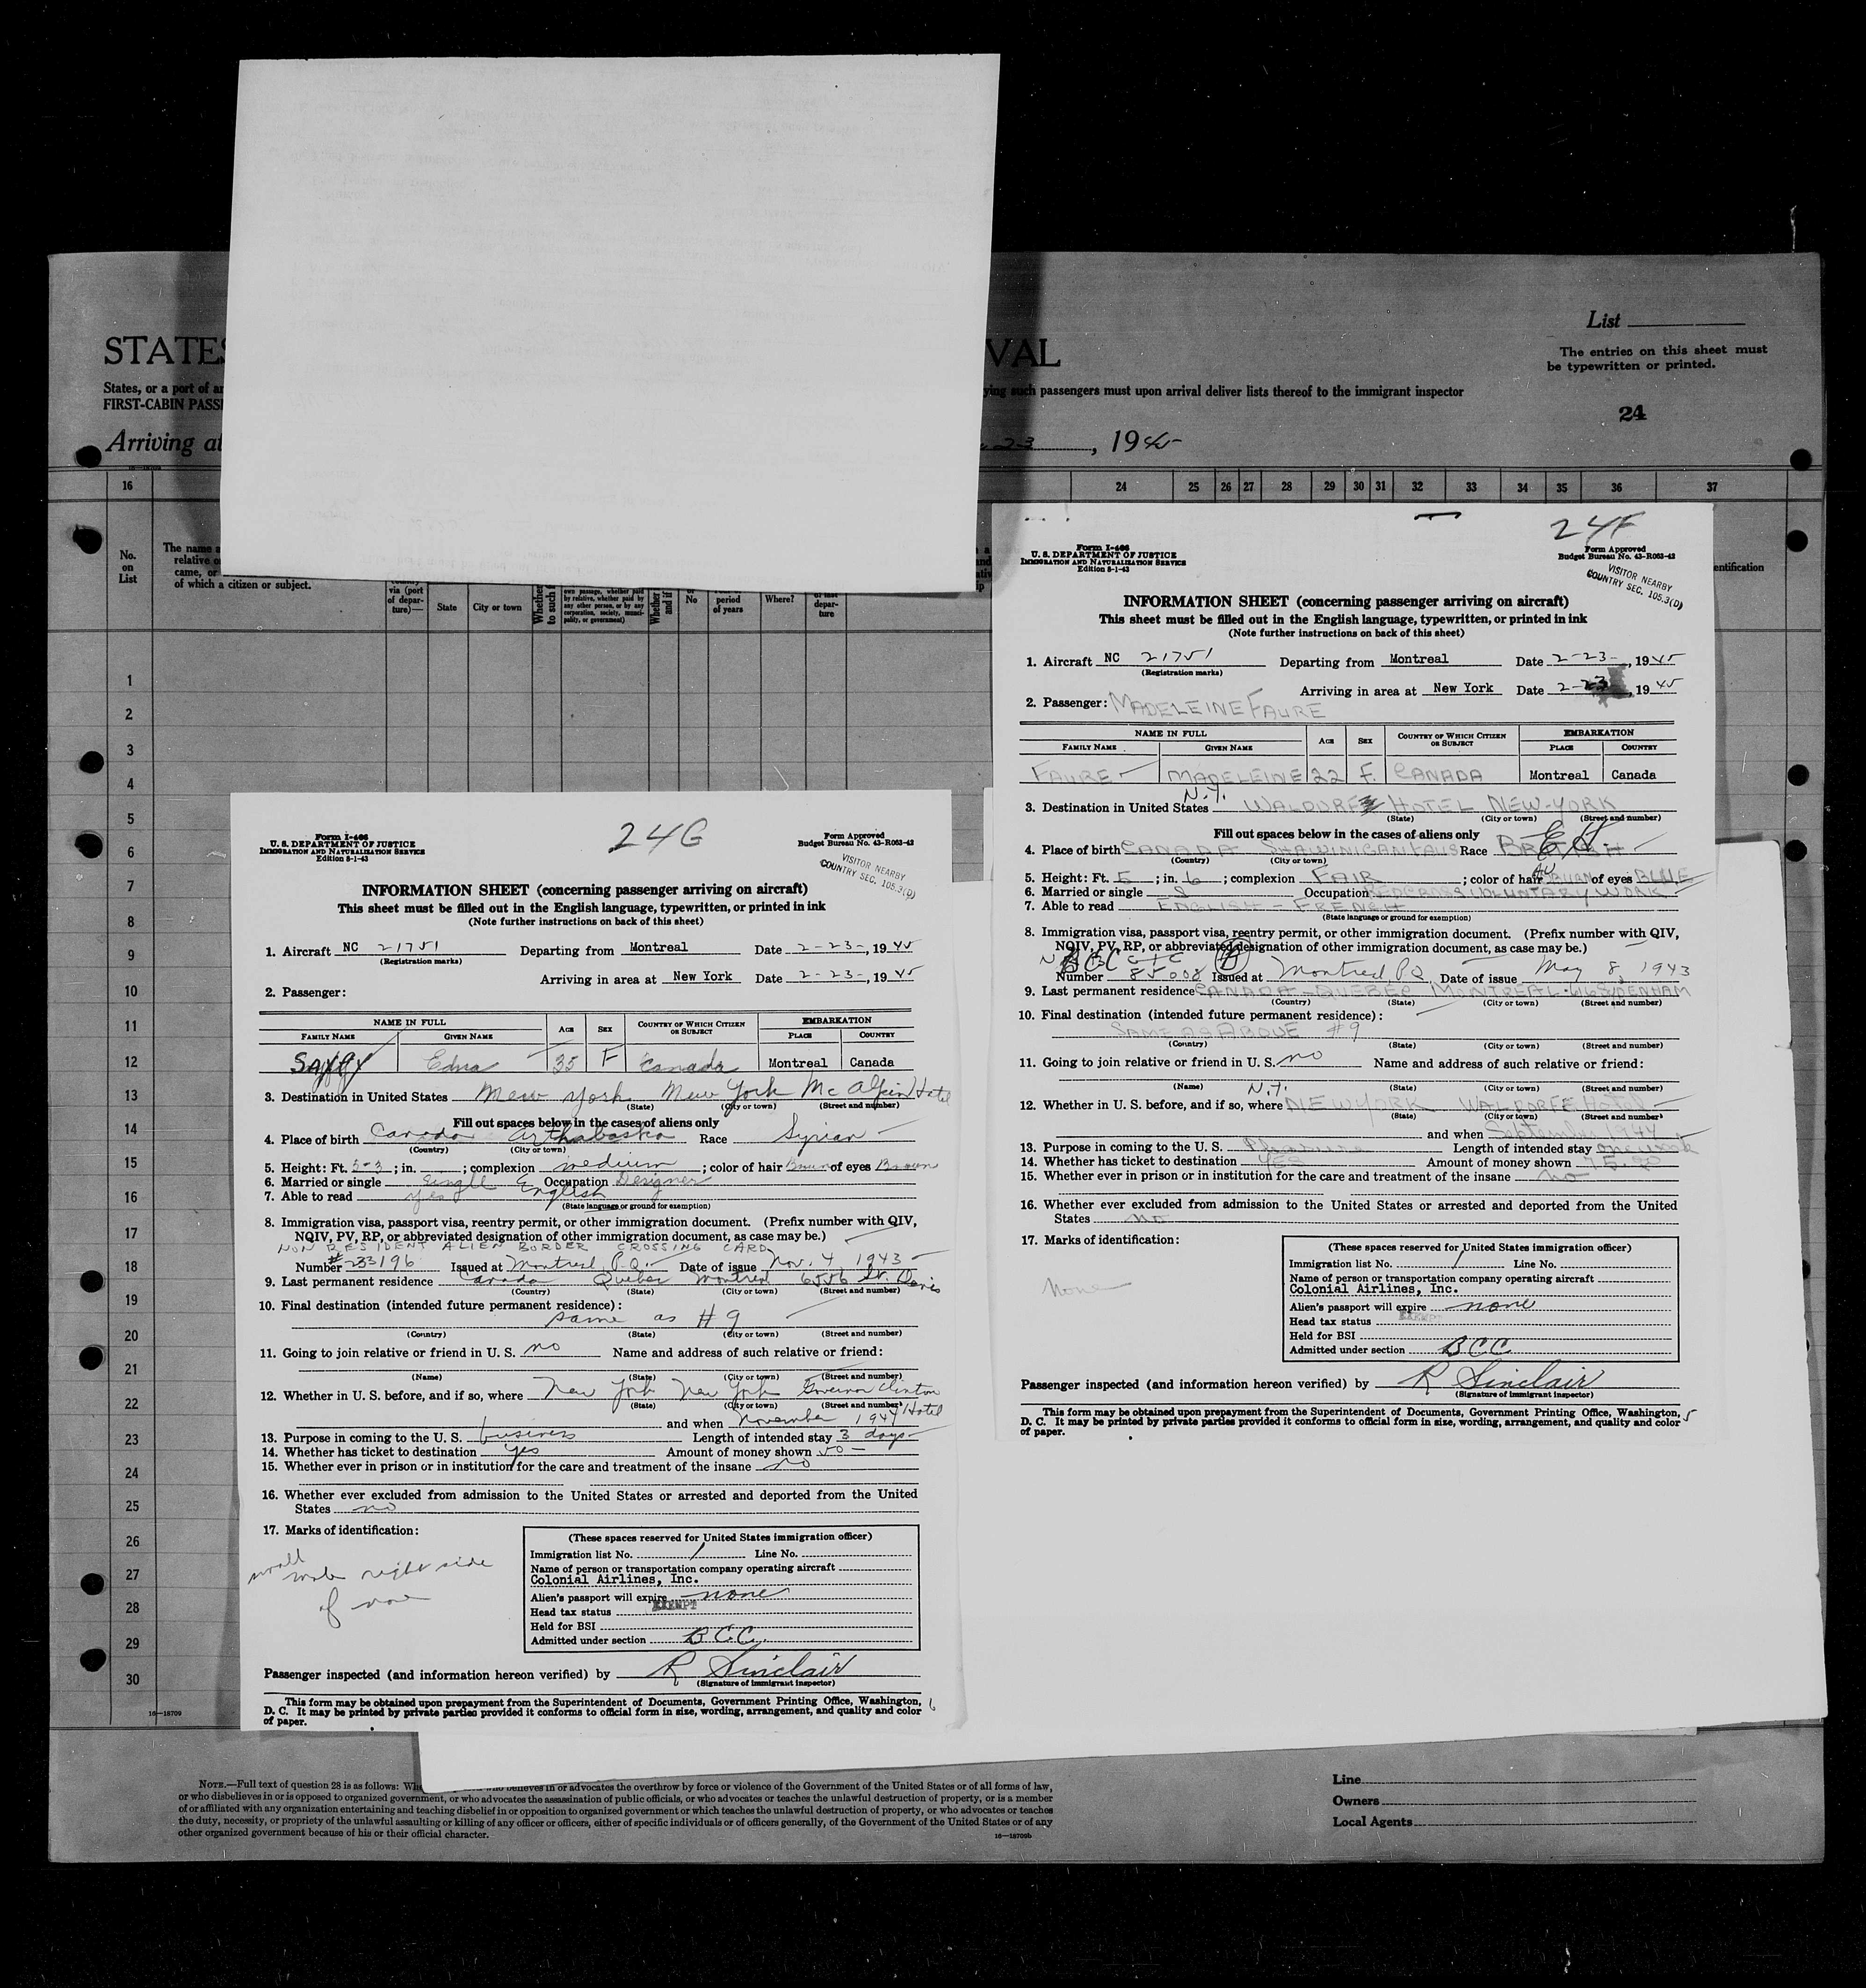 List
The entries on this sheet must
be typewritten or printed.
24
STATES
VAL
States, or a port of
ying such passengers must upon arrival deliver lists thereof to the immigrant inspector
FIRST-CABIN
Arriving at
23, 1945
16 24 25 26 27 28 29 30 31 32 33 34 35 36 37
No.
on
List
The name
relative
came, or
of which a citizen or subject.
via (port
of depar-
ture)—
State
City or town
Whether
to such
own passage, whether paid
by relative, whether paid by
any other person, or by any
corporation, society, munici-
pality, or government)
Whether
and if
No
period
of years
Where?
depar-
ture
entification
1
2
3
4
5
6
7
8
9
10
11
12
13
14
15
16
17
18
19
20
21
22
23
24
25
26
27
28
29
30
16—18709
24F
Form I-466
U. S. DEPARTMENT OF JUSTICE
IMMIGRATION AND NATURALIZATION SERVICE
Edition 8-1-43
Form Approved
Budget Bureau No. 43-R063-42
VISITOR NEARBY
COUNTRY SEC. 105.3(D)
INFORMATION SHEET (concerning passenger arriving on aircraft)
This sheet must be filled out in the English language, typewritten, or printed in ink
(Note further instructions on back of this sheet)
1. Aircraft NC 21751 Departing from Montreal Date 2-23-, 1945
(Registration marks)
Arriving in area at New York Date 2-23, 1945
2. Passenger: MADELEINE FAURE
NAME IN FULL AGE SEX COUNTRY OF WHICH CITIZEN OR SUBJECT EMBARKATION
FAMILY NAME GIVEN NAME PLACE COUNTRY
FAURE MADELEINE 22 F. CANADA Montreal Canada
N.Y.
3. Destination in United States WALDORF HOTEL NEW-YORK
(State) (City or town) (Street and number)
Fill out spaces below in the cases of aliens only
4. Place of birth CANADA SHAWINIGAN FALLS Race
(Country) (City or town)
5. Height: Ft. 5; in. 6; complexion FAIR; color of hair of eyes BLUE
6. Married or single S Occupation REDCROSS VOLUNTARY WORK
7. Able to read ENGLISH - FRENCH
(State language or ground for exemption)
8. Immigration visa, passport visa, reentry permit, or other immigration document. (Prefix number with QIV,
NQIV, PV, RP, or abbreviated designation of other immigration document, as case may be.)
BCC
Number 85008 Issued at Montreal PQ Date of issue May 8, 1943
9. Last permanent residence CANADA - QUEBEC MONTREAL
(Country) (State) (City or town) (Street and number)
10. Final destination (intended future permanent residence):
SAME AS ABOVE #9
(Country) (State) (City or town) (Street and number)
11. Going to join relative or friend in U. S. no Name and address of such relative or friend:
(Name) (State) (City or town) (Street and number)
N.Y.
12. Whether in U. S. before, and if so, where NEW YORK WALDORF Hotel
(State) (City or town) (Street and number)
and when September 1944
13. Purpose in coming to the U. S. Pleasure Length of intended stay one week
14. Whether has ticket to destination yes Amount of money shown 75.00
15. Whether ever in prison or in institution for the care and treatment of the insane no
16. Whether ever excluded from admission to the United States or arrested and deported from the United
States no
17. Marks of identification:
none
(These spaces reserved for United States immigration officer)
Immigration list No. 1 Line No.
Name of person or transportation company operating aircraft
Colonial Airlines, Inc.
Alien's passport will expire none
Head tax status EXEMPT
Held for BSI
Admitted under section BCC
Passenger inspected (and information hereon verified) by R Sinclair
(Signature of immigrant inspector)
This form may be obtained upon prepayment from the Superintendent of Documents, Government Printing Office, Washington, 5
D. C. It may be printed by private parties provided it conforms to official form in size, wording, arrangement, and quality and color
of paper.
24G
Form I-466
U. S. DEPARTMENT OF JUSTICE
IMMIGRATION AND NATURALIZATION SERVICE
Edition 8-1-43
Form Approved
Budget Bureau No. 43-R063-42
VISITOR NEARBY
COUNTRY SEC. 105.3(D)
INFORMATION SHEET (concerning passenger arriving on aircraft)
This sheet must be filled out in the English language, typewritten, or printed in ink
(Note further instructions on back of this sheet)
1. Aircraft NC 21751 Departing from Montreal Date 2-23-, 1945
(Registration marks)
Arriving in area at New York Date 2-23-, 1945
2. Passenger:
NAME IN FULL AGE SEX COUNTRY OF WHICH CITIZEN OR SUBJECT EMBARKATION
FAMILY NAME GIVEN NAME PLACE COUNTRY
Edna 35 F Canada Montreal Canada
3. Destination in United States New York New York McAlpin Hotel
(State) (City or town) (Street and number)
Fill out spaces below in the cases of aliens only
4. Place of birth Canada Arthabaska Race Syrian
(Country) (City or town)
5. Height: Ft. 5-3; in. ; complexion medium; color of hair Brown of eyes Brown
6. Married or single single Occupation Designer
7. Able to read yes English
(State language or ground for exemption)
8. Immigration visa, passport visa, reentry permit, or other immigration document. (Prefix number with QIV,
NQIV, PV, RP, or abbreviated designation of other immigration document, as case may be.)
NON RESIDENT ALIEN BORDER CROSSING CARD
Number #233196 Issued at Montreal P.Q. Date of issue Nov. 4 1943
9. Last permanent residence Canada Quebec Montreal 6556 St. Denis
(Country) (State) (City or town) (Street and number)
10. Final destination (intended future permanent residence):
same as #9
(Country) (State) (City or town) (Street and number)
11. Going to join relative or friend in U. S. no Name and address of such relative or friend:
(Name) (State) (City or town) (Street and number)
12. Whether in U. S. before, and if so, where New York New York Governor Clinton Hotel
(State) (City or town) (Street and number)
and when November 1944
13. Purpose in coming to the U. S. business Length of intended stay 3 days
14. Whether has ticket to destination yes Amount of money shown 50—
15. Whether ever in prison or in institution for the care and treatment of the insane no
16. Whether ever excluded from admission to the United States or arrested and deported from the United
States no
17. Marks of identification:
small mole right side
of nose
(These spaces reserved for United States immigration officer)
Immigration list No. 1 Line No.
Name of person or transportation company operating aircraft
Colonial Airlines, Inc.
Alien's passport will expire none
Head tax status EXEMPT
Held for BSI
Admitted under section B.C.C.
Passenger inspected (and information hereon verified) by R Sinclair
(Signature of immigrant inspector)
This form may be obtained upon prepayment from the Superintendent of Documents, Government Printing Office, Washington, 6
D. C. It may be printed by private parties provided it conforms to official form in size, wording, arrangement, and quality and color
of paper.
NOTE.—Full text of question 28 is as follows: believes in or advocates the overthrow by force or violence of the Government of the United States or of all forms of law,
or who disbelieves in or is opposed to organized government, or who advocates the assassination of public officials, or who advocates or teaches the unlawful destruction of property, or is a member
of or affiliated with any organization entertaining and teaching disbelief in or opposition to organized government or which teaches the unlawful destruction of property, or who advocates or teaches
the duty, necessity, or propriety of the unlawful assaulting or killing of any officer or officers, either of specific individuals or of officers generally, of the Government of the United States or of any
other organized government because of his or their official character.
16—18709b
Line
Owners
Local Agents